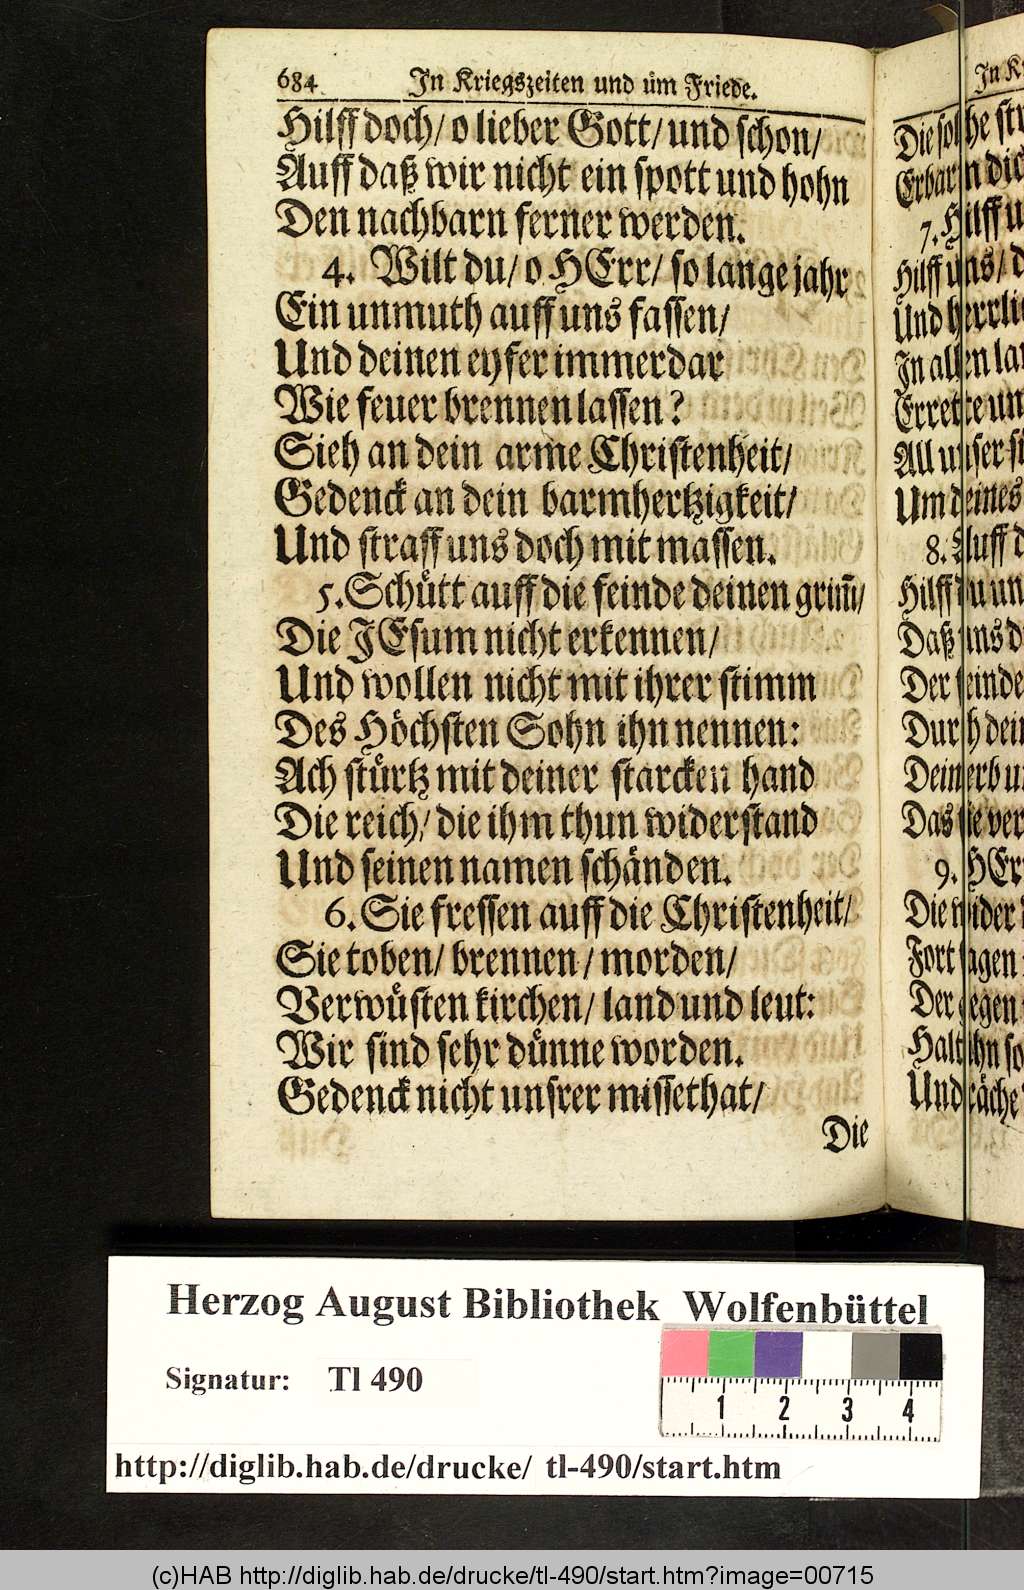 684 In Kriegszeiten und üm Friede.
Hilff doch/ o lieber Gott/ und schon/
Auff daß wir nicht ein spott und hohn
Den nachbarn ferner werden.
4. Wilt du/ o HErr/ so lange jahr
Ein unmuth auff uns fassen/
Und deinen eyfer immerdar
Wie feuer brennen lassen?
Sieh an dein arme Christenheit/
Gedenck an dein barmhertzigkeit/
Und straff uns doch mit massen.
5. Schütt auff die feinde deinen grim̃/
Die JEsum nicht erkennen/
Und wollen nicht mit ihrer stimm
Des Höchsten Sohn ihn nennen:
Ach stürtz mit deiner starcken hand
Die reich/ die ihm thun widerstand
Und seinen namen schänden.
6. Sie fressen auff die Christenheit/
Sie toben/ brennen/ morden/
Verwüsten kirchen/ land und leut:
Wir sind sehr dünne worden.
Gedenck nicht unsrer missethat/
Die
In
Die
Erbar
7. Hilff
Hilff uns/
Und
In allen
Errette
All unser
Um deines
8. Auff
Hilff du
Daß uns
Der feinde
Durch
Dein erb
Das sie
9. HErr
Die wider
Fort jagen
Der gegen
Halt ihn so
Und räche
Herzog August Bibliothek Wolfenbüttel
Signatur: Tl 490
1 2 3 4
http://diglib.hab.de/drucke/ tl-490/start.htm
(c)HAB http://diglib.hab.de/drucke/tl-490/start.htm?image=00715